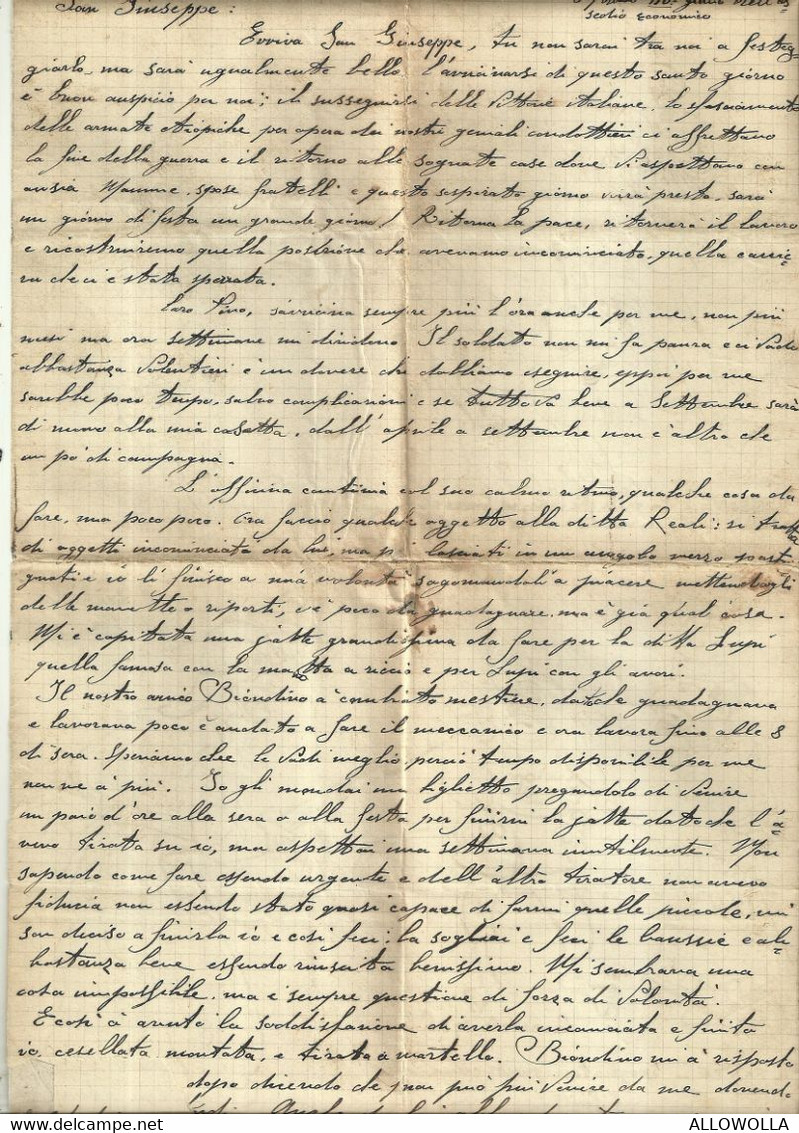 San Giuseppe:
scolio economico
Evviva San Giuseppe, tu non sarai tra noi a festeg=
giarlo, ma sarà ugualmente bello. L'avvicinarsi di questo santo giorno
è buon auspicio per noi; il susseguirsi delle Vittorie italiane, lo sfasciamento
delle armate etiopiche per opera dei nostri geniali condottieri ci affrettano
la fine della guerra e il ritorno alle sognate case dove Vi aspettano con
ansia Mamme, spose fratelli e questo sospirato giorno verrà presto, sarà
un giorno di festa un grande giorno! Ritorna la pace, ritornerà il lavoro
e ricostruiremo quella posizione che avevamo incominciato, quella carrie=
ra che ci è stata spezzata.
Caro Pino, s'avvicina sempre più l'ora anche per me, non più
mesi ma ora settimane mi dividono. Il soldato non mi fa paura e ci Vado
abbastanza Volentieri è un dovere che dobbiamo eseguire, eppoi per me
sarebbe poco tempo, salvo complicazioni e se tutto Va bene a Settembre sarò
di nuovo alla mia casetta, dall'aprile a settembre non c'è altro che
un pò di campagna.
L'officina continua col suo calmo ritmo, qualche cosa da
fare, ma poco poco. Ora faccio qualche oggetto alla ditta Reali: si tratta
di oggetti incominciati da lui, ma poi lasciati in un angolo mezzo parti
guasti e io li finisco a mia volontà sagomandoli a piacere mettendogli
delle manette o riporti, c'è poco da guadagnare, ma è già qual cosa.
Mi è capitata una jatte grandissima da fare per la ditta Lupi
quella famosa con la matta a riccio e per Lupi con gli avori.
Il nostro amico Biondino à cambiato mestiere, dato che guadagnava
e lavorava poco è andato a fare il meccanico e ora lavora fino alle 8
di sera. Speriamo che le Vadi meglio, perciò tempo disponibile per me
non ne à più. Io gli mandai un biglietto pregandolo di Venire
un paio d'ore alla sera o alla festa per finirmi la jatte dato che l'a=
vevo tirata su io, ma aspettai una settimana inutilmente. Non
sapendo come fare essendo urgente e dell'altro tiratore non avevo
fiducia non essendo stato quasi capace di farmi quelle piccole, mi
son deciso a finirla io e così feci; la sogliai e feci le baussie e ab=
bastanza bene essendo riuscita benissimo. Mi sembrava una
cosa impossibile, ma è sempre questione di forza di Volontà.
E così ò avuto la soddisfazione di averla incominciata e finita
io, cesellata, montata, e tirata a martello. Biondino mi à risposto
dopo dicendo che non può più Venire da me dovend=
ALLOWOLLA